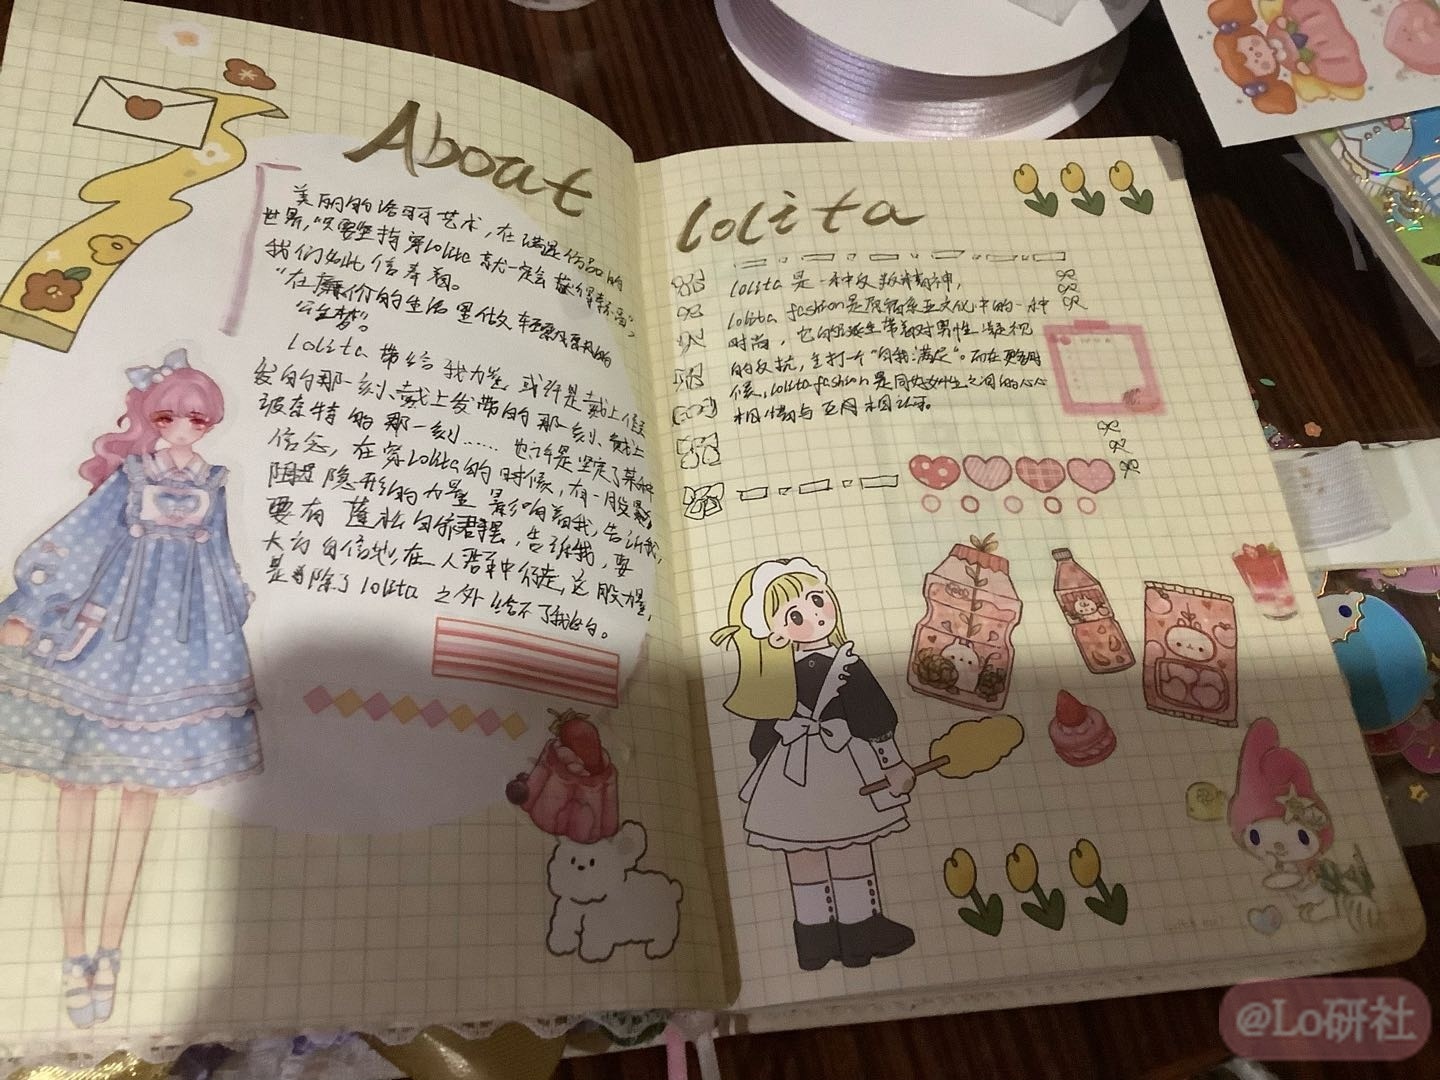 About
美丽的洛可可艺术，在满是伤害的
世界，“只要坚持穿lolita就一定会获得幸福”，
我们如此信奉着。
“在廉价的生活里做
公主梦”。
lolita带给我力量，或许是戴上假
发的那一刻、戴上发带的那一刻、戴上
的那一刻……也许是坚定了某种
信念，在穿lolita的时候，有一股
隐形的力量影响着我，告诉我，
要有蓬松的裙摆，告诉我，要
大方自信地在人群中行走，这股力量，
是除了lolita之外给不了我的。
lolita
lolita是一种反叛精神，
lolita fashion是原宿系亚文化中的一种
时尚，它的诞生带着对男性凝视
的反抗，主打一个“自我满足”。而在更多时
候，lolita fashion是同好女性之间的心心
相惜与互相认可。
@Lo研社